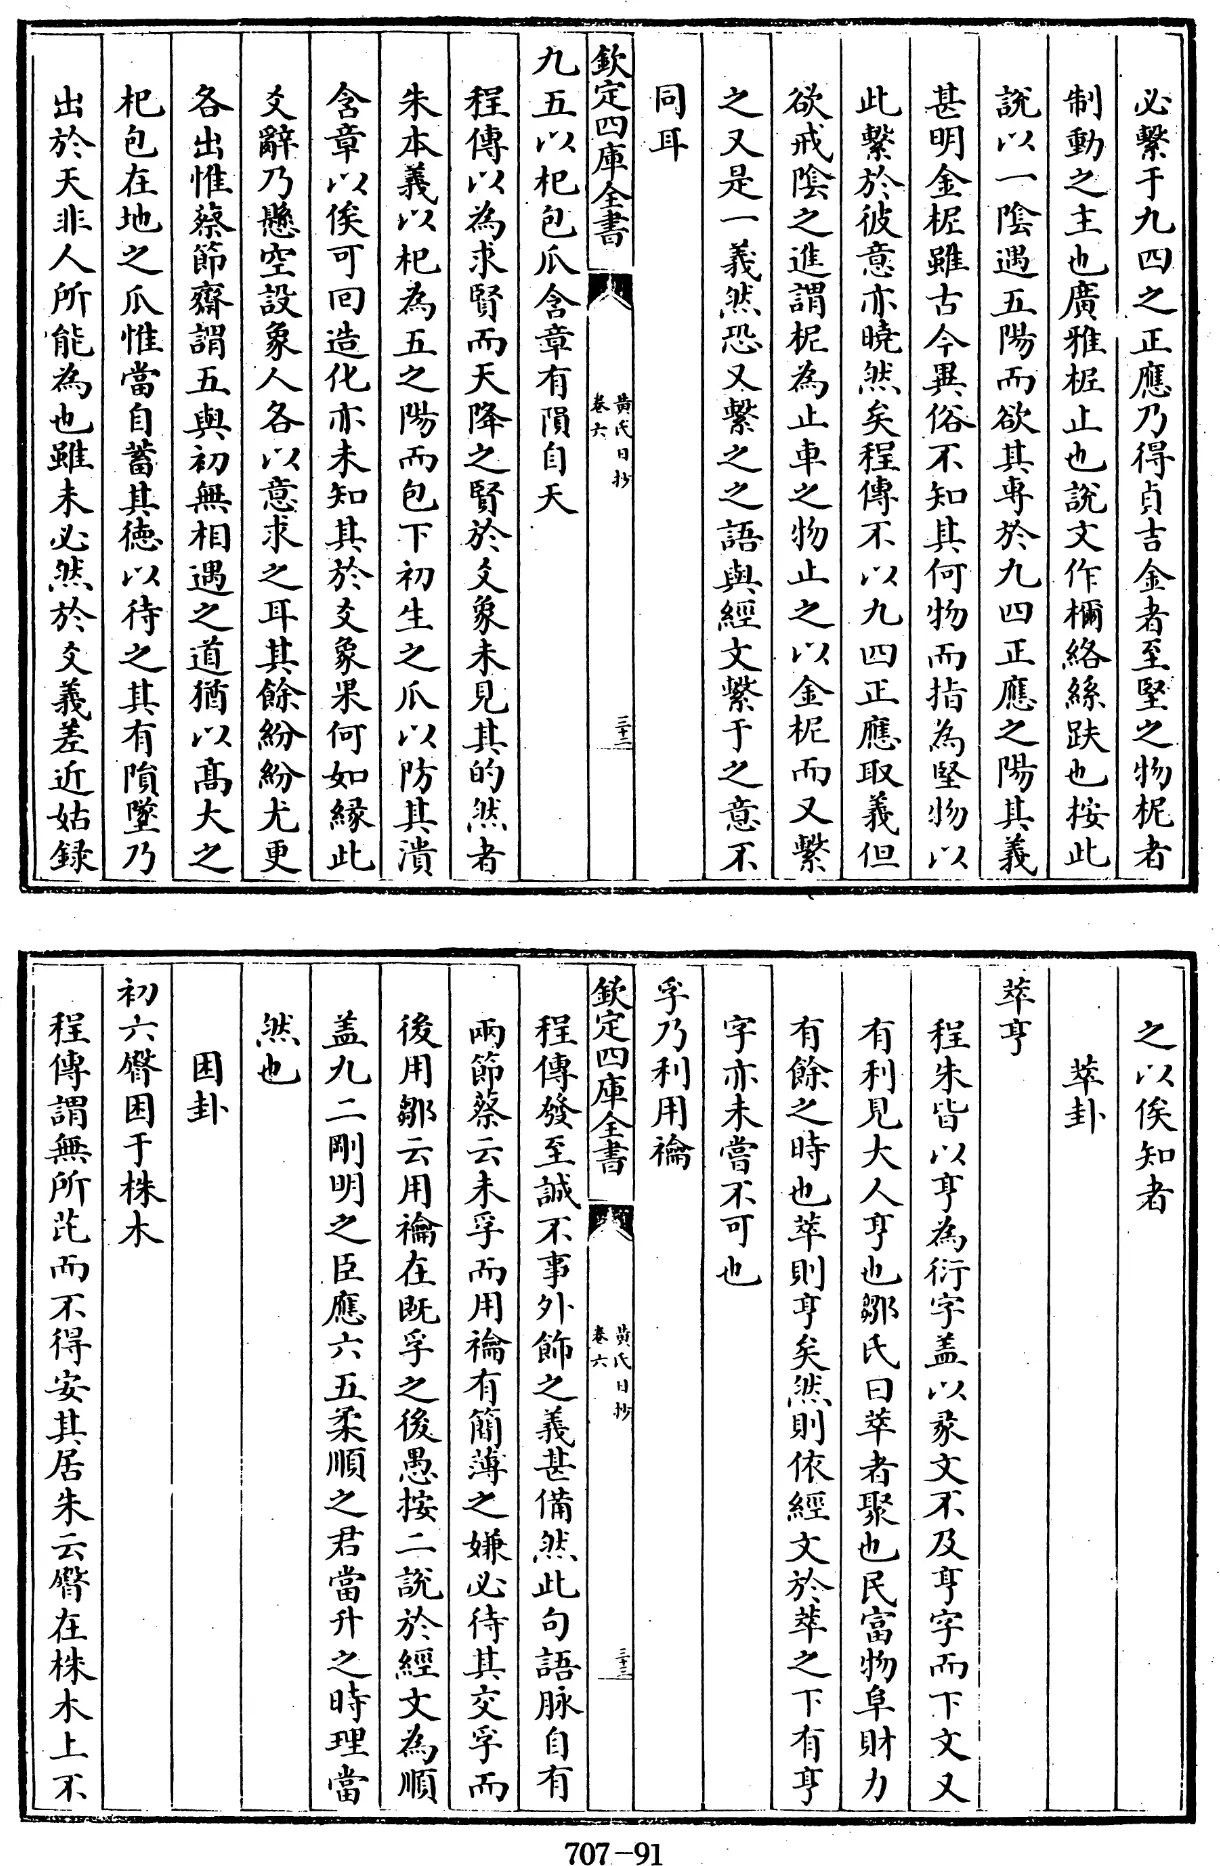 必繫于九四之正應乃得貞吉金者至堅之物柅者
制動之主也廣雅柅止也說文作檷絡絲趺也按此
說以一陰遇五陽而欲其專於九四正應之陽其義
甚明金柅雖古今異俗不知其何物而指為堅物以
此繫於彼意亦曉然矣程傳不以九四正應取義但
欲戒陰之進謂柅為止車之物止之以金柅而又繫
之又是一義然恐又繫之之語與經文繫于之意不
同耳
欽定四庫全書
黃氏日抄
卷六
三十二
九五以杞包瓜含章有隕自天
程傳以為求賢而天降之賢於爻象未見其的然者
朱本義以杞為五之陽而包下初生之瓜以防其潰
含章以俟可回造化亦未知其於爻象果何如緣此
爻辭乃懸空設象人各以意求之耳其餘紛紛尤更
各出惟蔡節齋謂五與初無相遇之道猶以高大之
杞包在地之瓜惟當自蓄其德以待之其有隕墜乃
出於天非人所能為也雖未必然於爻義差近姑録
之以俟知者
萃卦
萃亨
程朱皆以亨為衍字盖以彖文不及亨字而下文又
有利見大人亨也鄒氏曰萃者聚也民富物阜財力
有餘之時也萃則亨矣然則依經文於萃之下有亨
字亦未嘗不可也
孚乃利用禴
欽定四庫全書
黃氏日抄
卷六
三十三
程傳發至誠不事外飾之義甚備然此句語脉自有
兩節蔡云未孚而用禴有簡薄之嫌必待其交孚而
後用鄒云用禴在既孚之後愚按二說於經文為順
盖九二剛明之臣應六五柔順之君當升之時理當
然也
困卦
初六臀困于株木
程傳謂無所芘而不得安其居朱云臀在株木上不
707-91